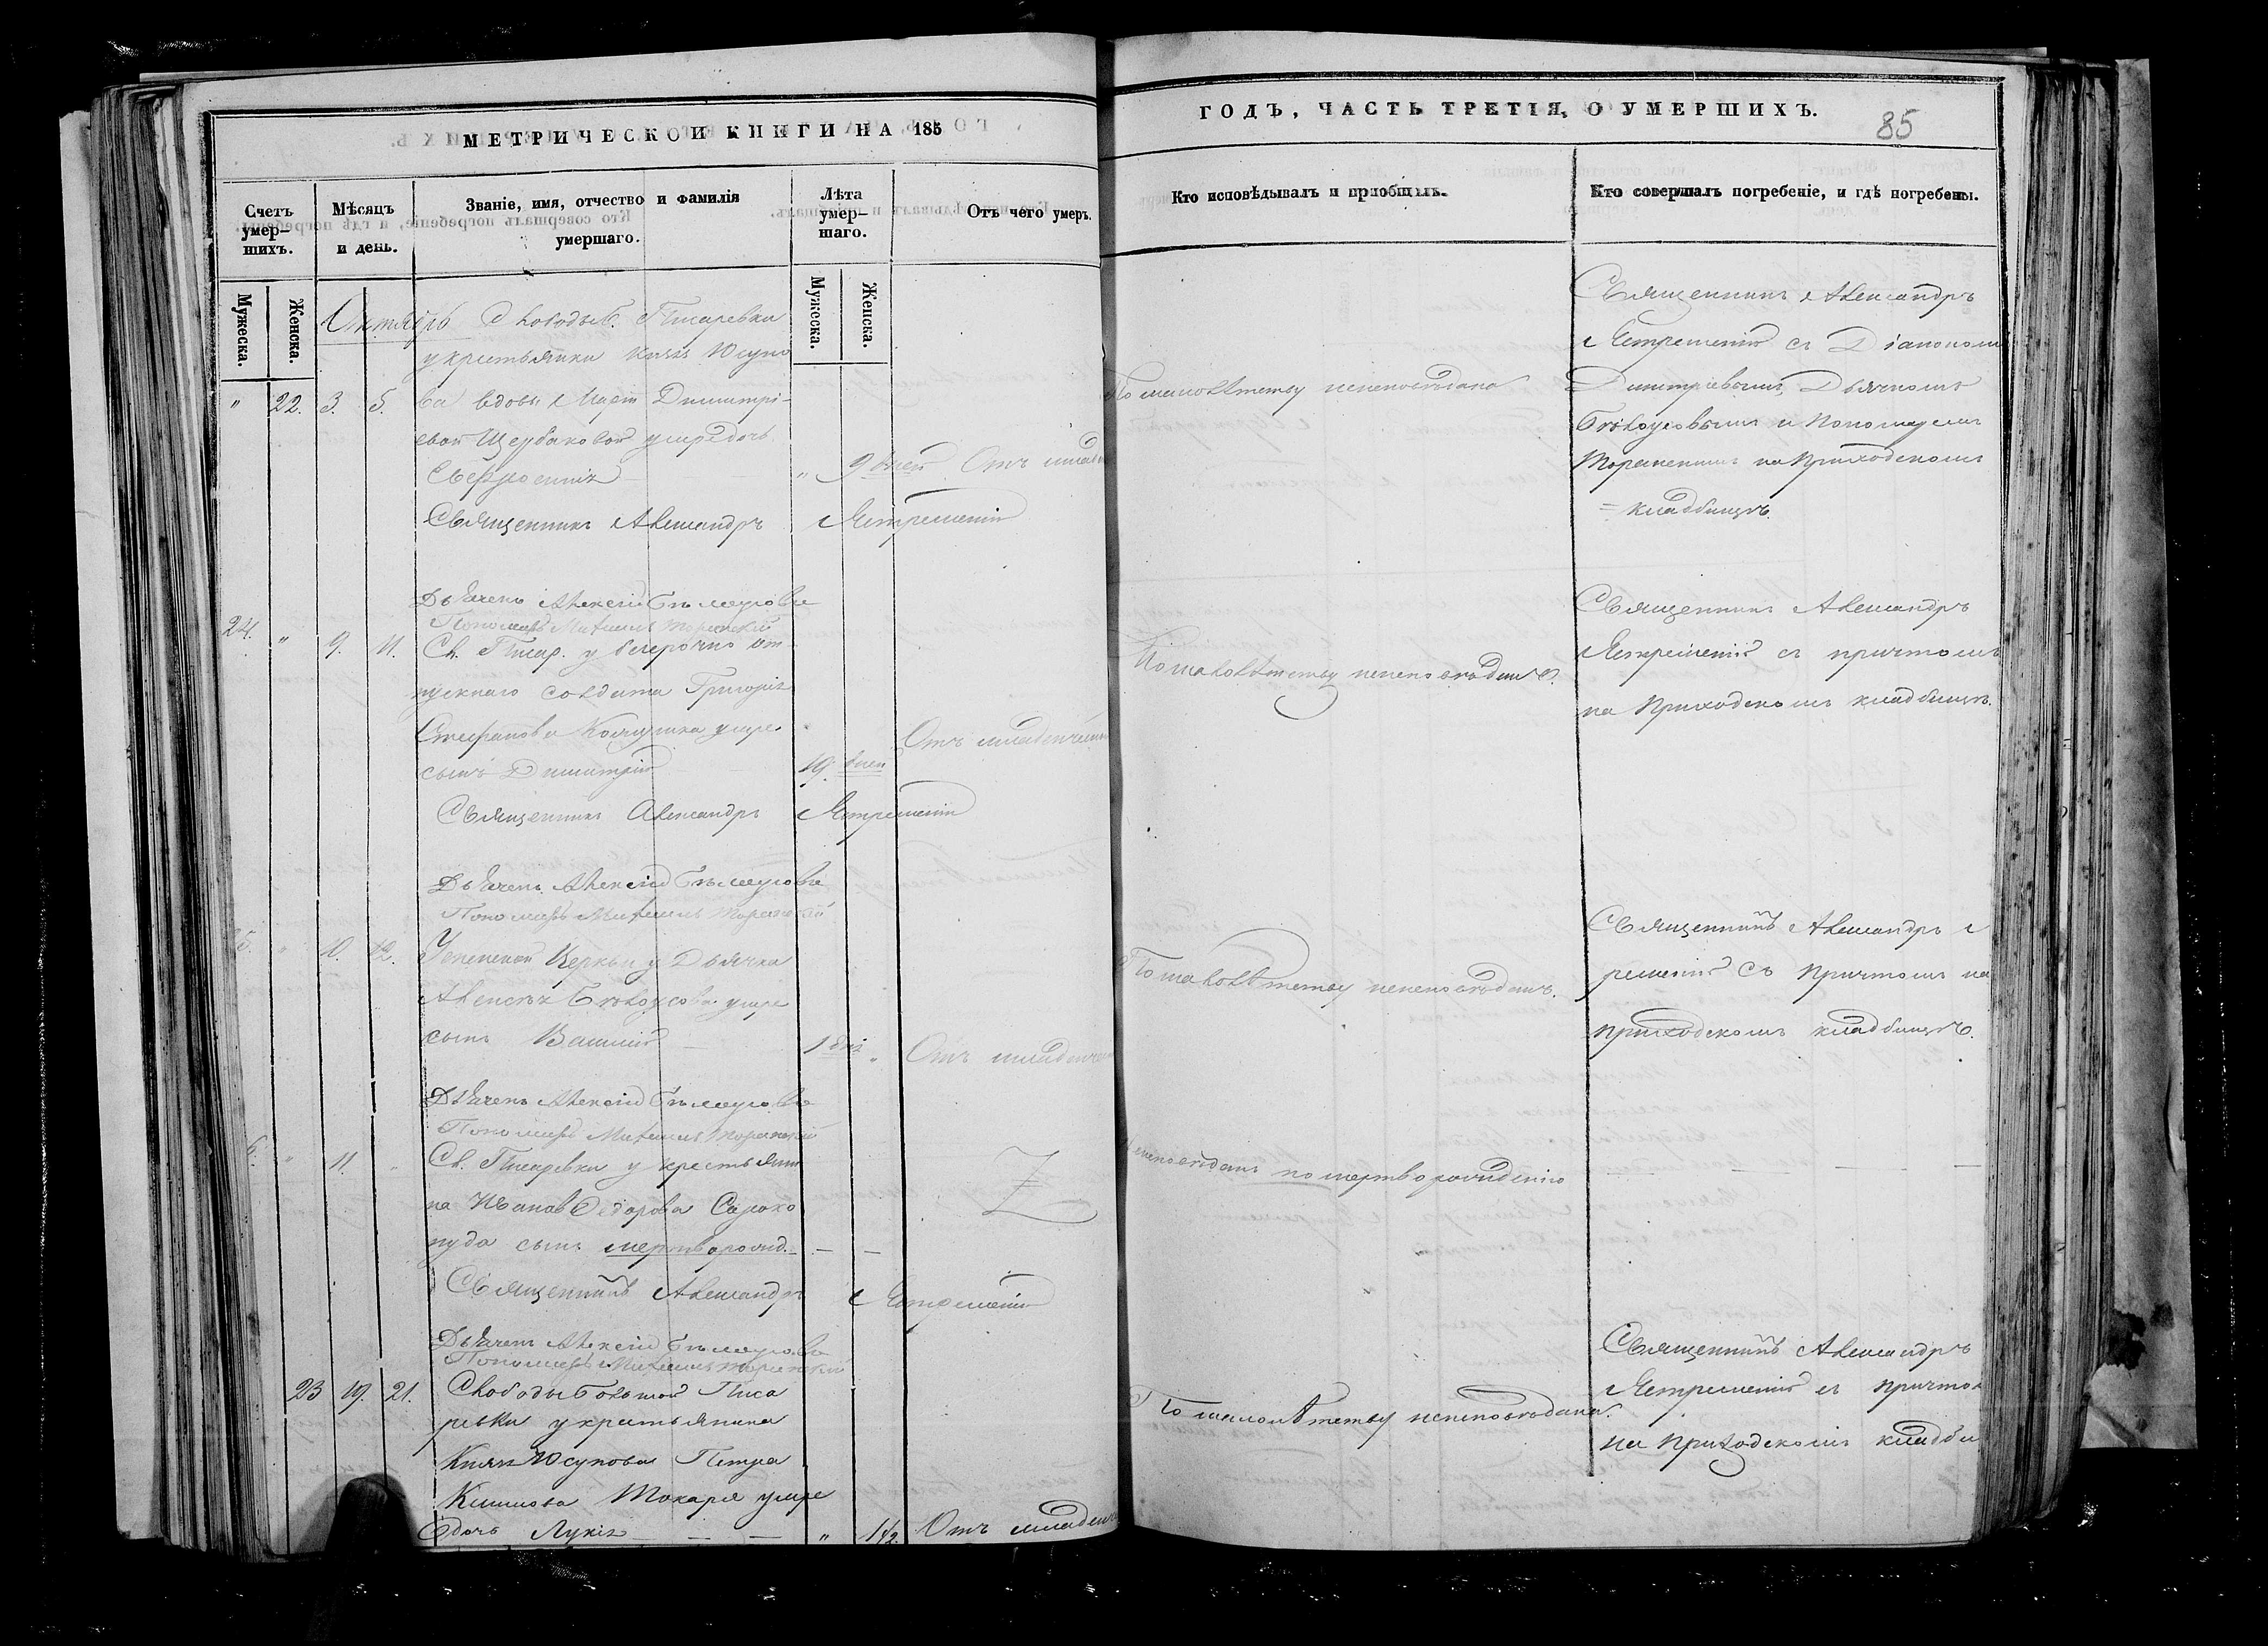 МЕТРИЧЕСКОЙ КНИГИ НА 185
Счетъ умер-шихъ.
Мѣсяцъ и день.
Званіе, имя, отчество и фамилія умершаго.
Лѣта умер-шаго.
Отъ чего умеръ.
Мужеска.
Женска.
Мужеска.
Женска.
Октябрь Слободы Б. Писаревки
у крестьянки Князя Юсупо
" 22. 3. 5. ва вдовы Димитрі-
евой Щербаковой умре дочь
Евфросинія " 9 дней Отъ
Священникъ Александръ Ястремскій
Дьячекъ Алексій Бѣлоусовъ
Пономарь Михаилъ Торанскій
24. " 9. 11. Сл. Писар. у безсрочно от
пускнаго солдата Григорія
Стефанова умре
сынъ Димитрій 19. дней Отъ младенческ
Священникъ Александръ Ястремскій
Дьячекъ Алексій Бѣлоусовъ
Пономарь Михаилъ Торанскій
" 10. 12. Успенской Церкви у Дьячка
Алексѣя Бѣлоусова умре
сынъ Василій 1 дня " Отъ младенческ
Дьячекъ Алексій Бѣлоусовъ
Пономарь Михаилъ Торанскій
" 11. " Сл. Писаревки у крестьяни
на Ивана Ѳедорова Сороко
пуда сынъ мертворожд. — —
Священникъ Александръ Ястремскій
Дьячекъ Алексій Бѣлоусовъ
Пономарь Михаилъ Торанскій
23 19. 21. Слободы Большой Писа
ревки у крестьянина
Князя Юсупова Петра
Климова Токаря умре
дочь Лукія — — " 1 1/2. Отъ младенч
ГОДЪ, ЧАСТЬ ТРЕТІЯ, О УМЕРШИХЪ.
85
Кто исповѣдывалъ и пріобщалъ.
Кто совершалъ погребеніе, и гдѣ погребены.
Священникъ Александръ
Ястремскій съ Діакономъ
По малолѣтству неисповѣдана Димитріевымъ, Дьячкомъ
Бѣлоусовымъ и Пономаремъ
Торанскимъ на Приходскомъ
= кладбищѣ.
Священникъ Александръ
Ястремскій съ причтомъ
По малолѣтству неисповѣданъ.
на Приходскомъ кладбищѣ.
Священникъ Александръ
ремскій съ Причтомъ на
По малолѣтству неисповѣданъ.
приходскомъ кладбищѣ.
неисповѣданъ по мертворожденію — — — —
Священникъ Александръ
Ястремскій съ причтом
По малолѣтству неисповѣдана.
на Приходскомъ кладби